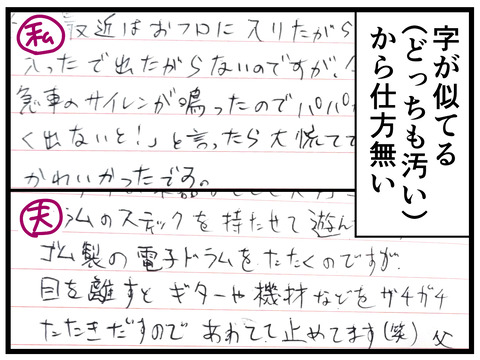 字が似てる
(どっちも汚い)
から仕方無い
私
最近はおフロに入りたがら
入ったで出たがらないのですが、
急車のサイレンが鳴ったのでパパが
く出ないと!」と言ったら大慌てで
かわいかったです。
夫
ラムのスティックを持たせて遊ん
ゴム製の電子ドラムをたたくのですが、
目を離すとギターや機材などをガチガチ
たたきだすのであわてて止めてます(笑) 父